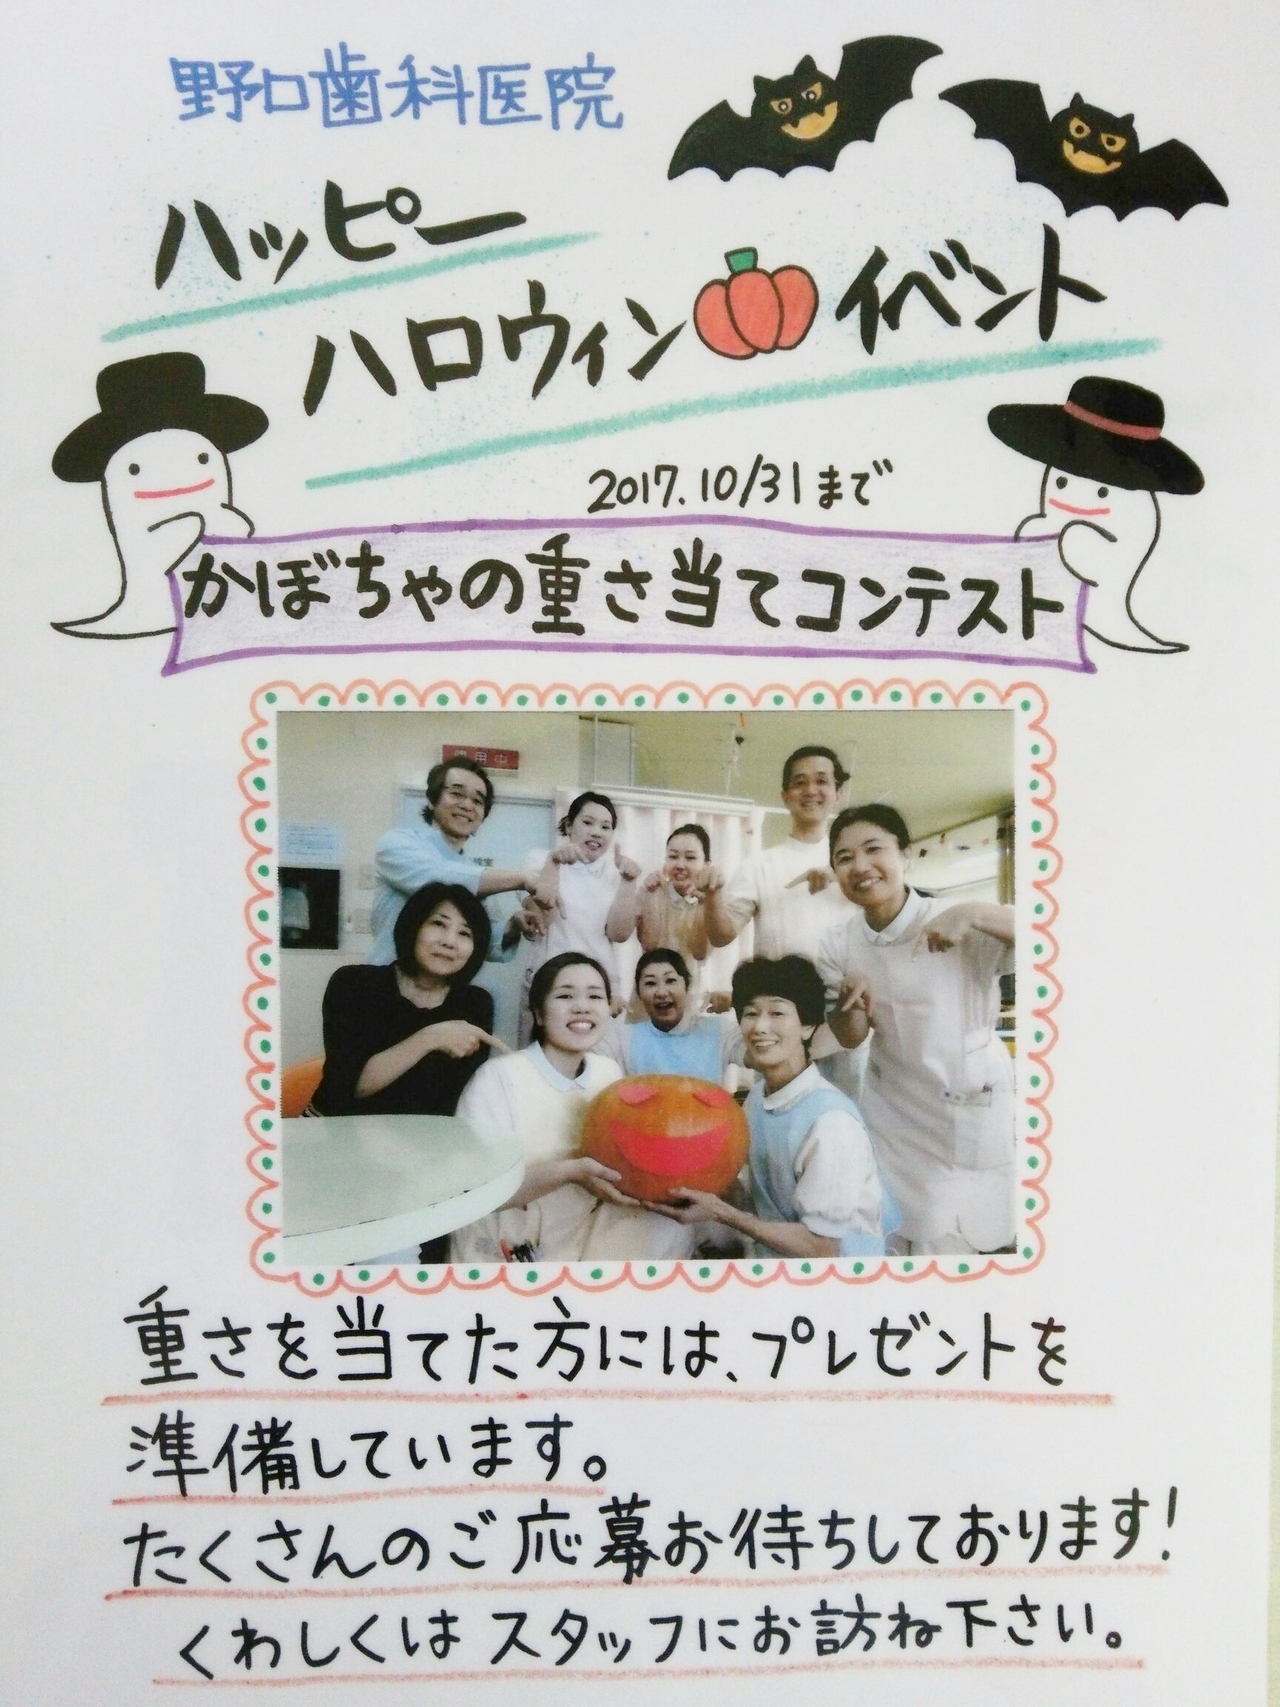 野口歯科医院
ハッピー
ハロウィンイベント
2017.10/31まで
かぼちゃの重さ当てコンテスト
使用中
重さを当てた方には、プレゼントを
準備しています。
たくさんのご応募お待ちしております!
くわしくはスタッフにお訪ね下さい。